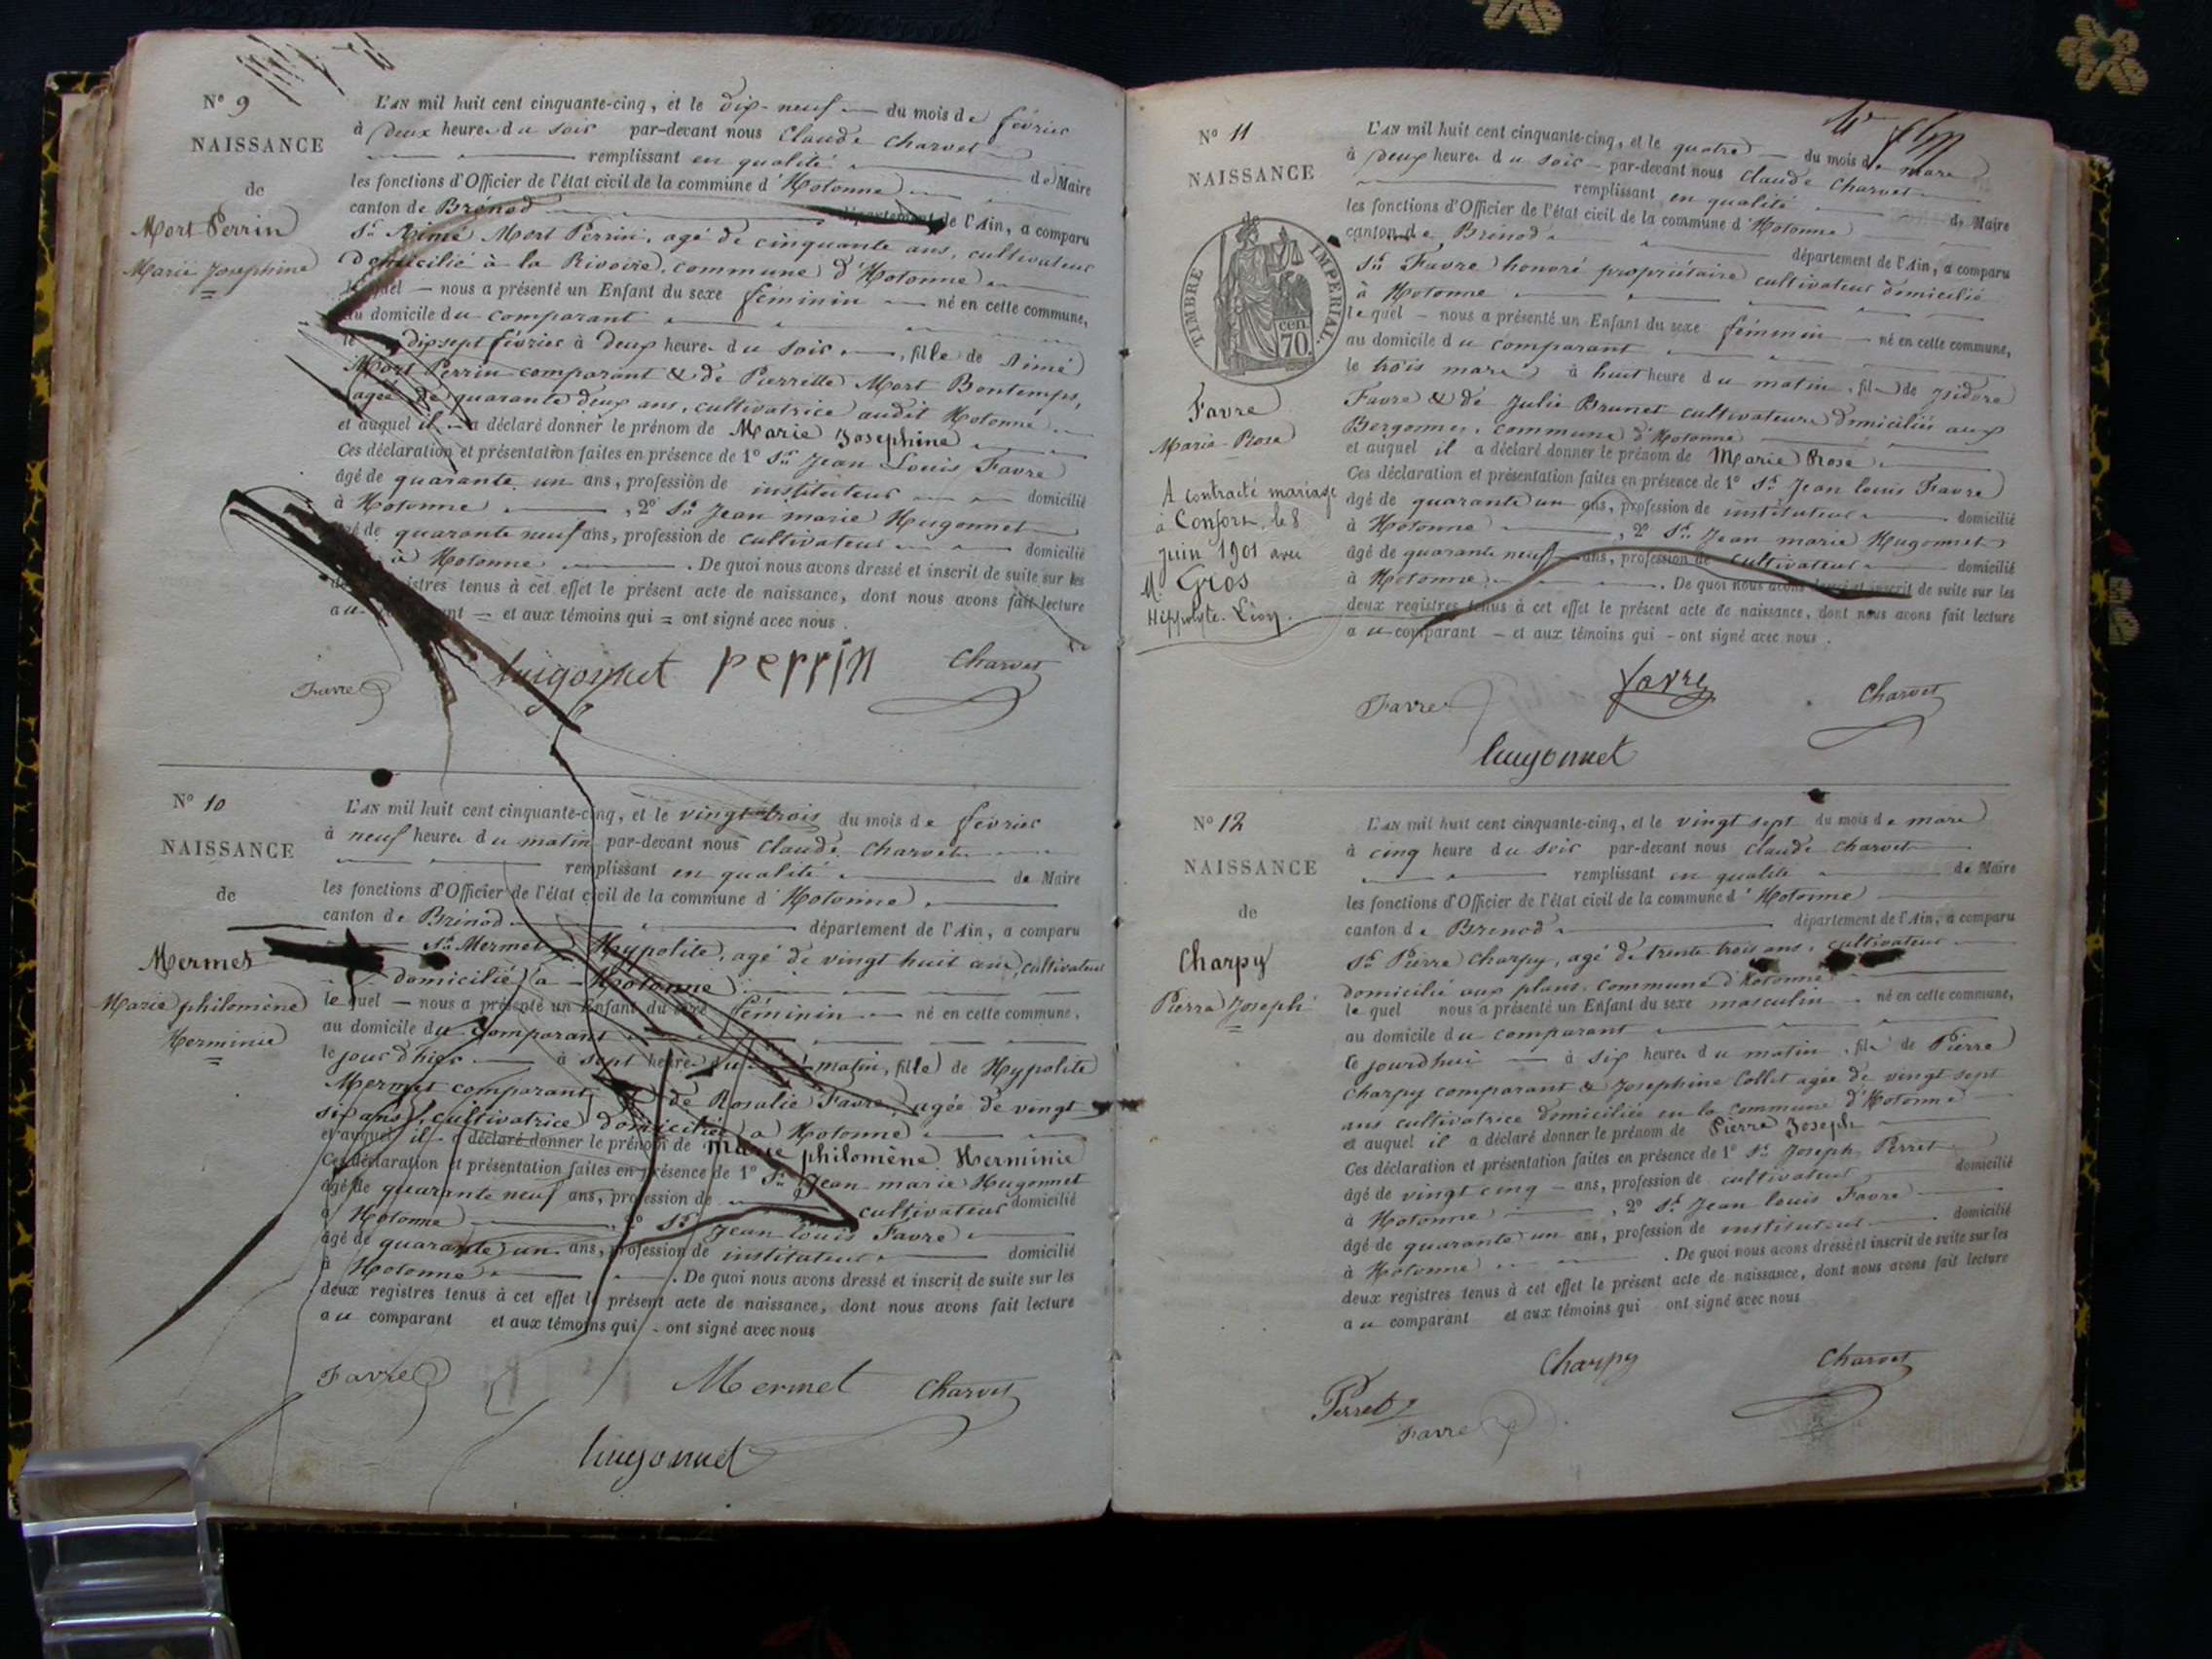 N° 9
NAISSANCE
de
Mort Perrin
Marie Josephine
L'AN mil huit cent cinquante-cinq, et le dix-neuf du mois de février
à deux heures du soir par-devant nous Claude Charvet
remplissant en qualité de Maire
les fonctions d'Officier de l'état civil de la commune d'Hotonne
canton de Brénod département de l'Ain, a comparu
Sr. Aimé Mort Perrin, agé de cinquante ans, cultivateur
domicilié à la Rivoire, commune d'Hotonne
lequel nous a présenté un Enfant du sexe féminin né en cette commune,
au domicile du comparant
le dix sept février à deux heures du soir, fille de Aimé
Mort Perrin comparant & de Pierrette Mort Bontemps,
agée de quarante deux ans, cultivatrice audit Hotonne
et auquel il a déclaré donner le prénom de Marie Josephine
Ces déclaration et présentation faites en présence de 1° Sr. Jean Louis Favre
âgé de quarante un ans, profession de instituteur domicilié
à Hotonne, 2° Sr. Jean marie Hugonnet
âgé de quarante neuf ans, profession de cultivateur domicilié
à Hotonne. De quoi nous avons dressé et inscrit de suite sur les
deux registres tenus à cet effet le présent acte de naissance, dont nous avons fait lecture
au comparant = et aux témoins qui = ont signé avec nous.
Favre hugonnet perrin Charvet
N° 10
NAISSANCE
de
Mermet
Marie philomène
Herminie
L'AN mil huit cent cinquante-cinq, et le vingt-trois du mois de février
à neuf heures du matin par-devant nous Claude Charvet
remplissant en qualité de Maire
les fonctions d'Officier de l'état civil de la commune d'Hotonne
canton de Brénod département de l'Ain, a comparu
Sr. Mermet Hypolite, agé de vingt huit ans, cultivateur
domicilié à Hotonne
lequel nous a présenté un Enfant du sexe féminin né en cette commune,
au domicile du comparant
le jour d'hier à sept heures du matin, fille de Hypolite
Mermet comparant & de Rosalie Favre, agée de vingt
six ans, cultivatrice domiciliée à Hotonne
et auquel il a déclaré donner le prénom de Marie philomène Herminie
Ces déclaration et présentation faites en présence de 1° Sr. Jean marie Hugonnet
âgé de quarante neuf ans, profession de cultivateur domicilié
à Hotonne, 2° Sr. Jean louis Favre
âgé de quarante un ans, profession de instituteur domicilié
à Hotonne. De quoi nous avons dressé et inscrit de suite sur les
deux registres tenus à cet effet le présent acte de naissance, dont nous avons fait lecture
au comparant et aux témoins qui - ont signé avec nous
Favre Mermet Charvet
hugonnet
N° 11
NAISSANCE
de
TIMBRE IMPERIAL
70 cen.
Favre
Marie-Rose
A contracté mariage
à Confort, le 8
juin 1901 avec
M. Gros
Hippolyte-Léon.
L'AN mil huit cent cinquante-cinq, et le quatre du mois de mars
à deux heures du soir par-devant nous Claude Charvet
remplissant en qualité de Maire
les fonctions d'Officier de l'état civil de la commune d'Hotonne
canton de Brénod département de l'Ain, a comparu
Sr. Favre honoré propriétaire cultivateur domicilié
à Hotonne
lequel nous a présenté un Enfant du sexe féminin né en cette commune,
au domicile du comparant
le trois mars à huit heure du matin, file de Isidore
Favre & de Julie Brunet cultivateurs domiciliés aux
Bergonnes, commune d'Hotonne
et auquel il a déclaré donner le prénom de Marie Rose
Ces déclaration et présentation faites en présence de 1° Sr. Jean louis Favre
âgé de quarante un ans, profession de instituteur domicilié
à Hotonne, 2° Sr. Jean marie Hugonnet
âgé de quarante neuf ans, profession de cultivateur domicilié
à Hotonne. De quoi nous avons dressé et inscrit de suite sur les
deux registres tenus à cet effet le présent acte de naissance, dont nous avons fait lecture
au comparant - et aux témoins qui - ont signé avec nous.
Favre favre Charvet
hugonnet
N° 12
NAISSANCE
de
Charpy
Pierre Joseph
L'AN mil huit cent cinquante-cinq, et le vingt sept du mois de mars
à cinq heure du soir par-devant nous Claude Charvet
remplissant en qualité de Maire
les fonctions d'Officier de l'état civil de la commune d'Hotonne
canton de Brenod département de l'Ain, a comparu
Sr. Pierre Charpy, agé de trente trois ans, cultivateur
domicilié aux plans, commune d'Hotonne
lequel nous a présenté un Enfant du sexe masculin né en cette commune,
au domicile du comparant
ce jourdhui à six heures du matin, fils de Pierre
Charpy comparant & Josephine Collet agée de vingt sept
ans cultivatrice domiciliée en la commune d'Hotonne
et auquel il a déclaré donner le prénom de Pierre Joseph
Ces déclaration et présentation faites en présence de 1° Sr. Joseph Perret
âgé de vingt cinq ans, profession de cultivateur domicilié
à Hotonne, 2° Sr. Jean louis Favre
âgé de quarante un ans, profession de instituteur domicilié
à Hotonne. De quoi nous avons dressé et inscrit de suite sur les
deux registres tenus à cet effet le présent acte de naissance, dont nous avons fait lecture
au comparant et aux témoins qui ont signé avec nous
Charpy Charvet
Perret Favre